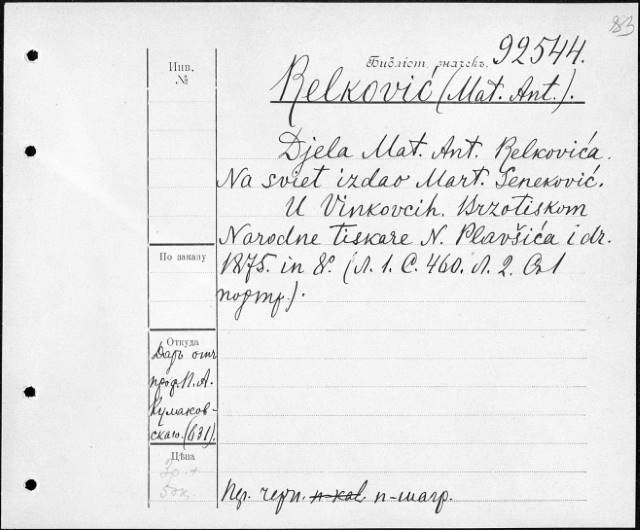 83
Инв.
№
Библіот. значекъ. 92544.
Relković (Mat. Ant.).
Djela Mat. Ant. Relkovića.
Na sviet izdao Mart. Seneković.
U Vinkovcih. Brzotiskom
Narodne tiskare N. Plavšića i dr.
1875. in 8º. (Л. 1. С. 460. Л. 2. Съ 1
портр.).
По заказу
Откуда
Даръ отъ
проф. П. А.
Кулаков-
скаго. (631).
Цѣна
3р. +
50к.
Пер. черн. п-шагр.